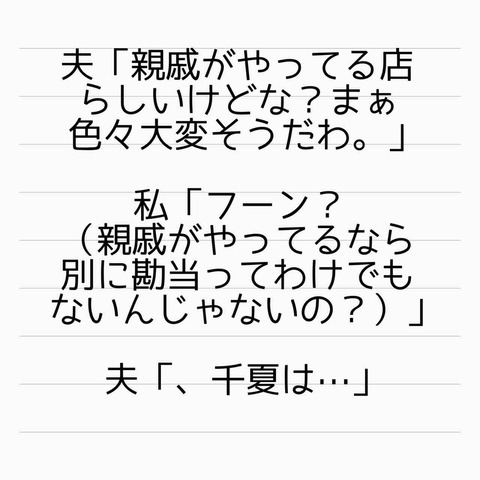 夫「親戚がやってる店
らしいけどな？まぁ
色々大変そうだわ。」
私「フーン？
（親戚がやってるなら
別に勘当ってわけでも
ないんじゃないの？）」
夫「、千夏は…」